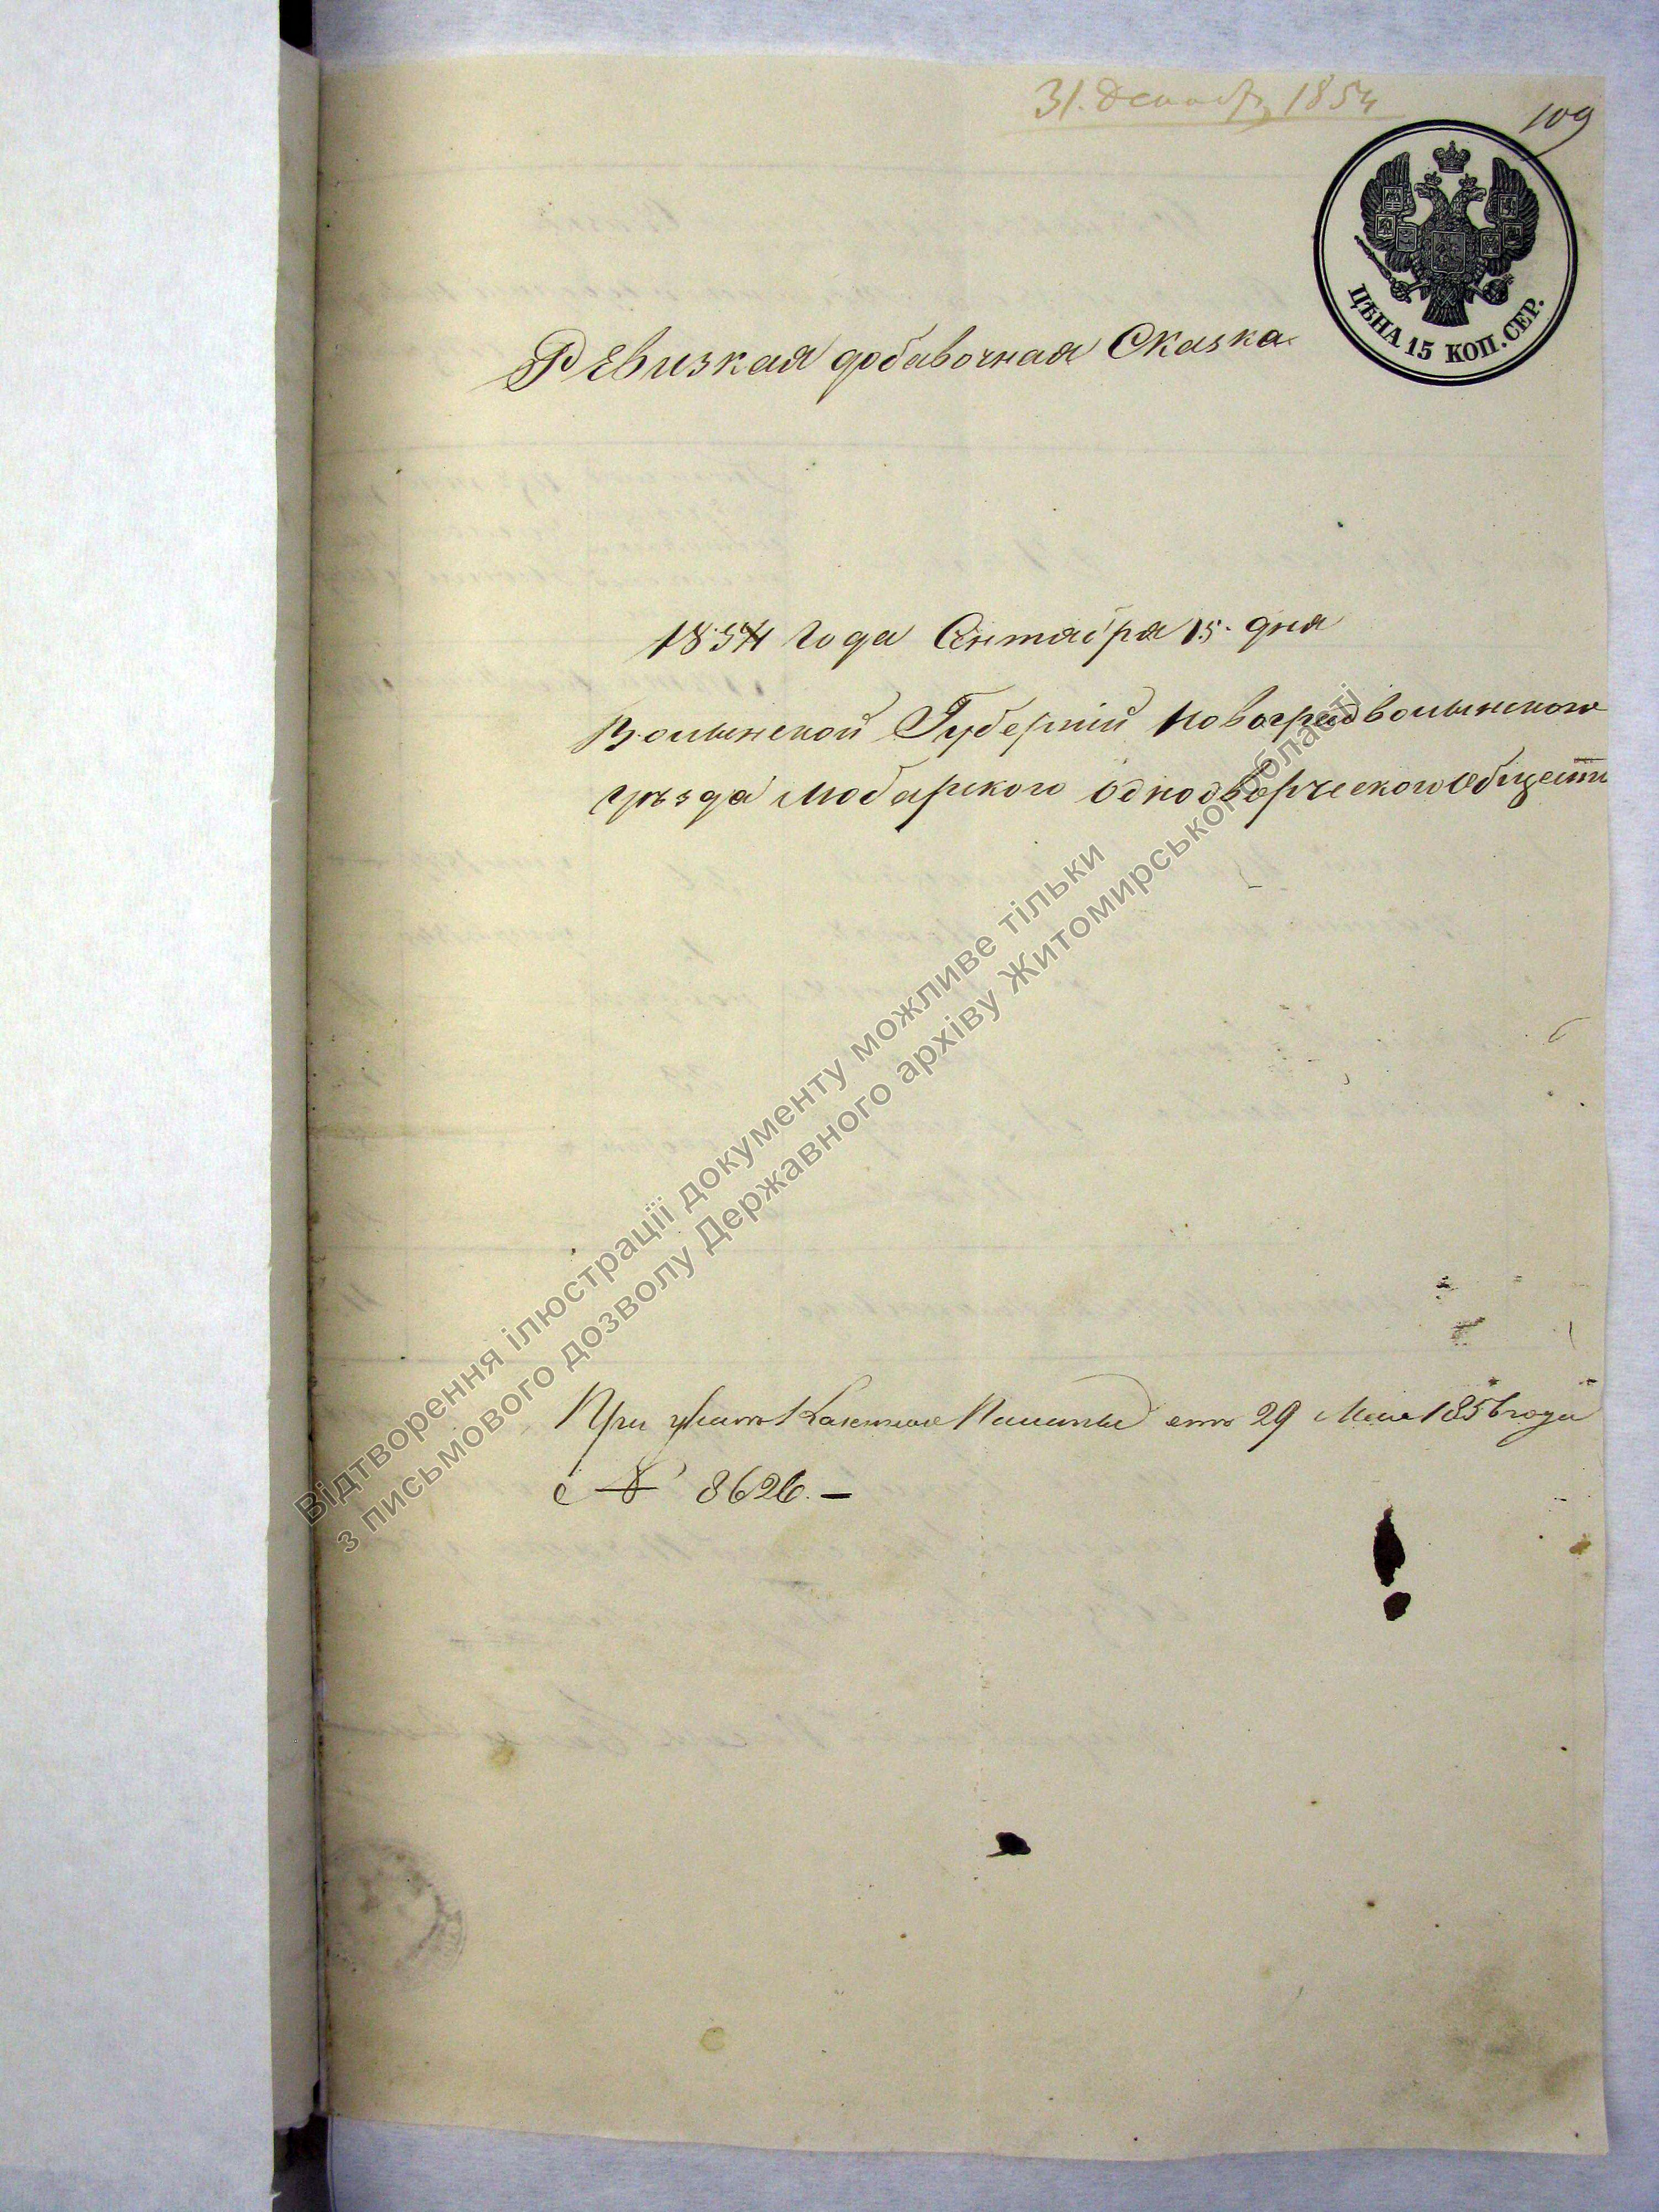 31. Декабр 1854
109
ЦѢНА 15 КОП. СЕР.
Ревизкая добавочная Сказка
1854 года Сентабра 15. дня
Волынской Губерніи Новоградволынского
уѣзда Любарского Однодворческого Общест
При указѣ Казенной Палаты отъ 29 Мая 1856 года
с № 8626.—
Відтворення ілюстрації документу можливе тільки
з письмового дозволу Державного архіву Житомирської області